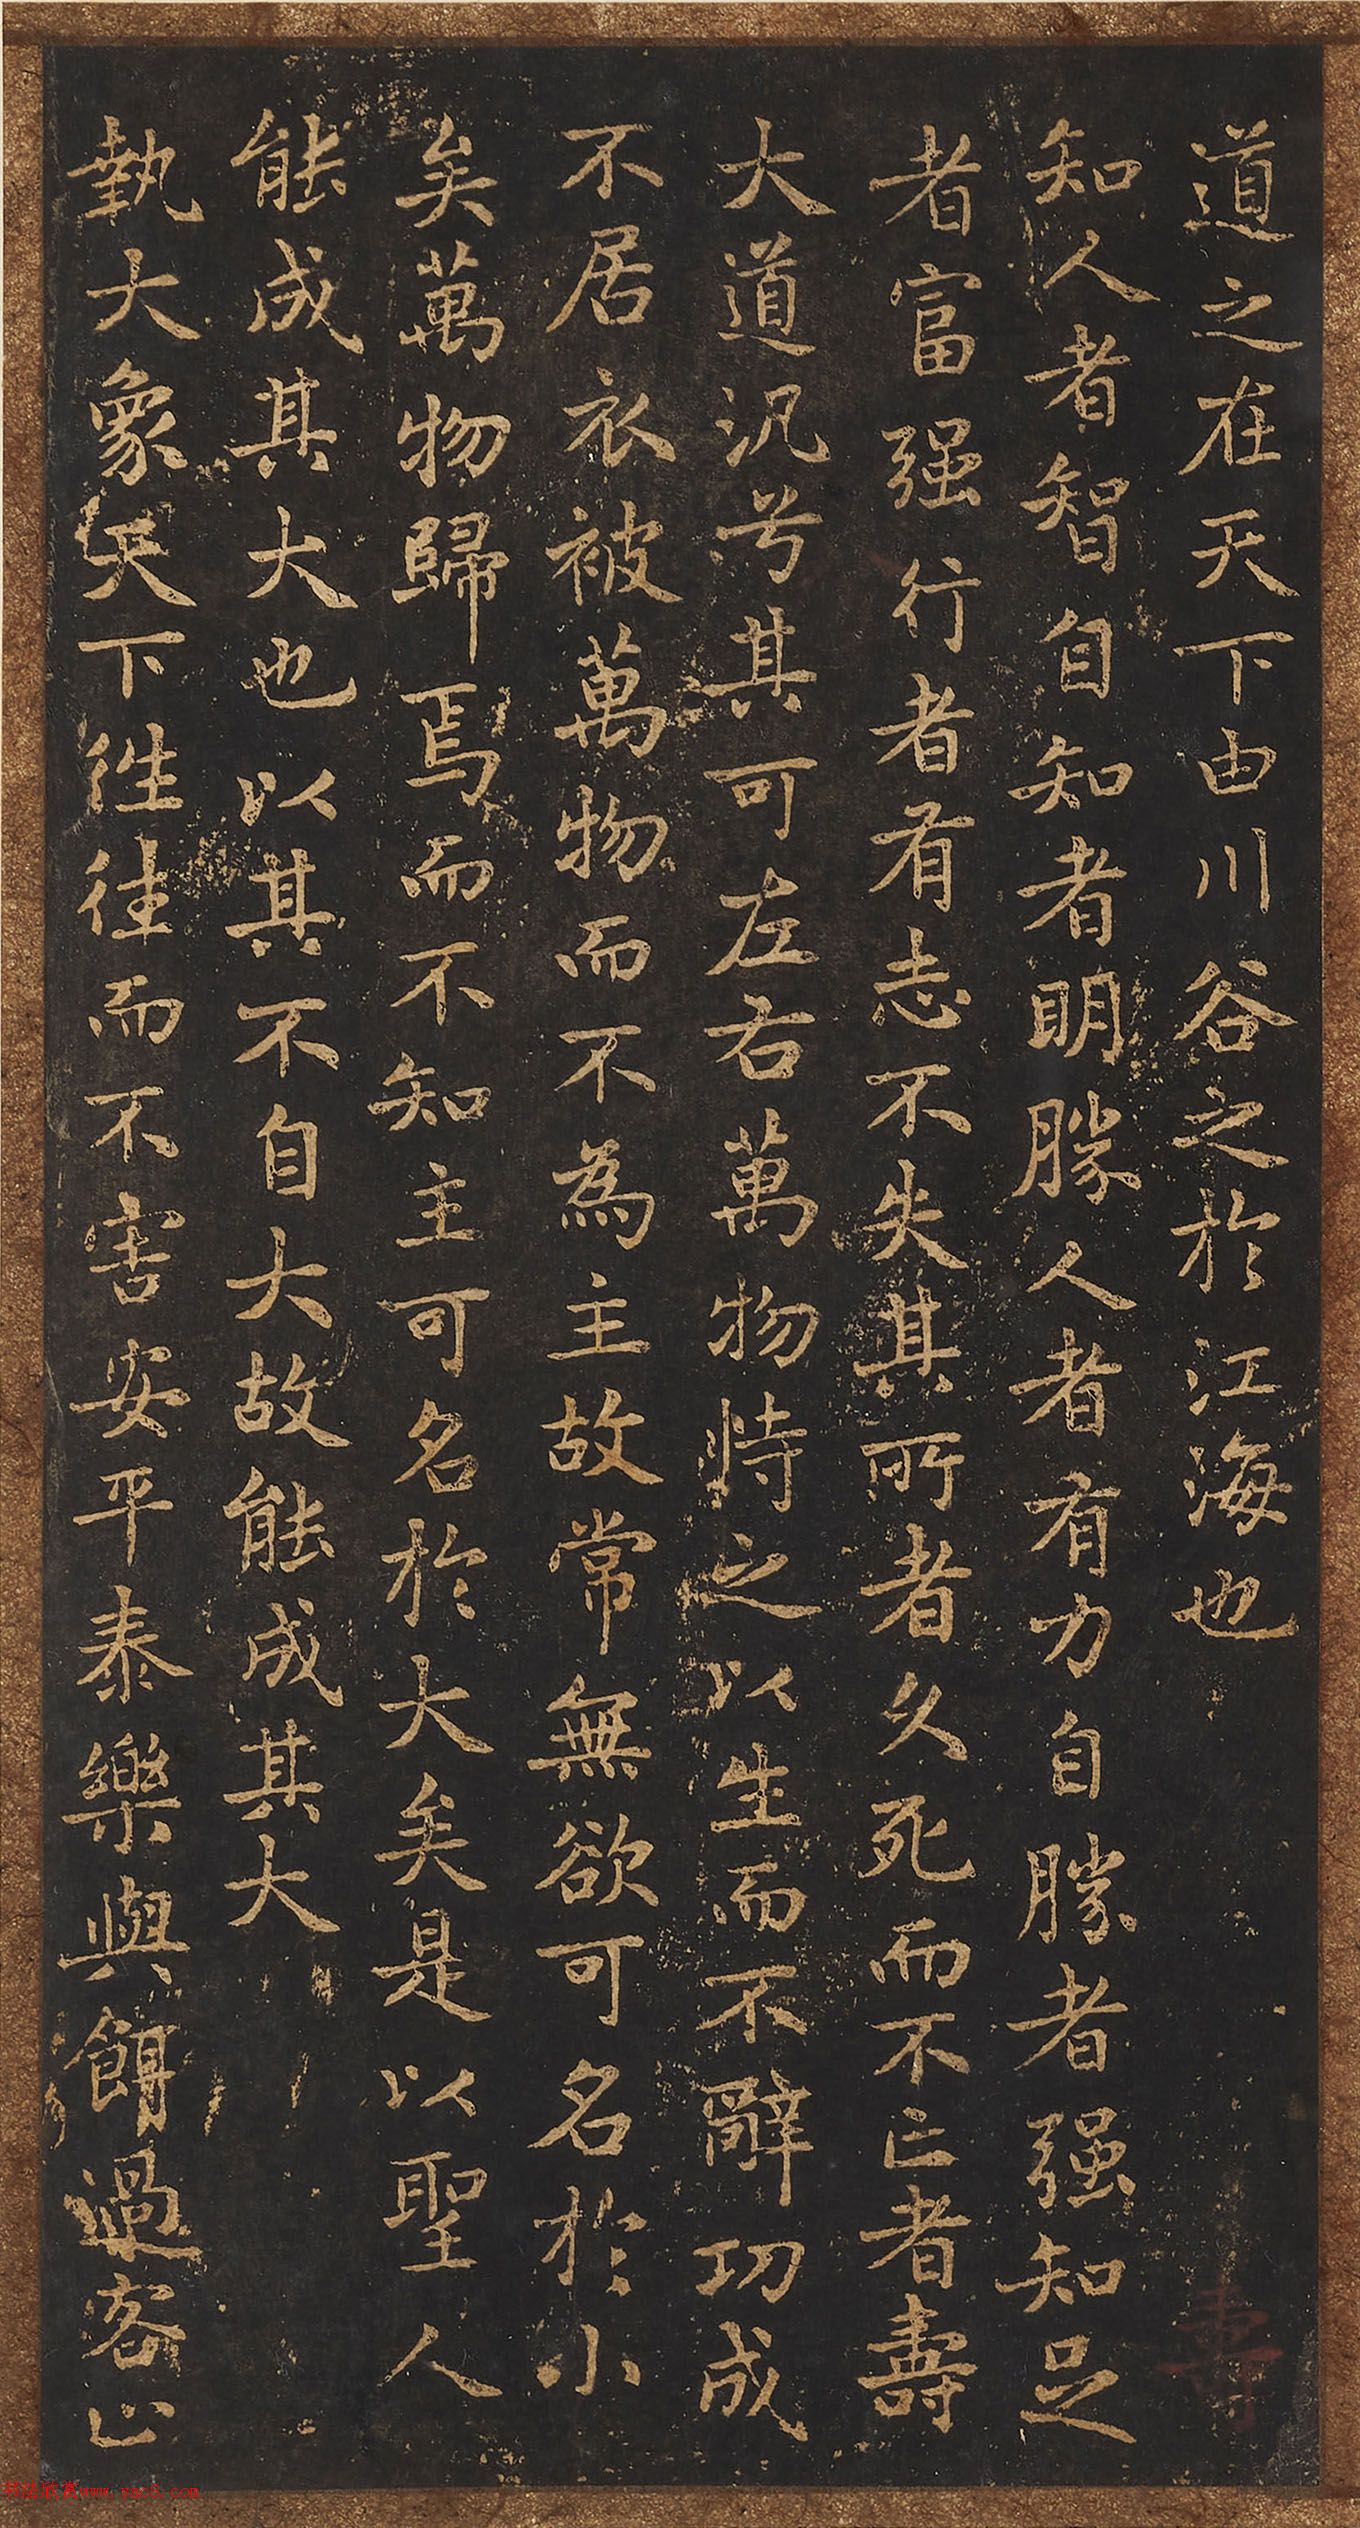 道之在天下由川谷之於江海也
知人者智自知者明勝人者有力自勝者强知足
者富强行者有志不失其所者久死而不亡者壽
大道汎兮其可左右萬物恃之以生而不辭功成
不居衣被萬物而不為主故常無欲可名於小
矣萬物歸焉而不知主可名於大矣是以聖人
能成其大也以其不自大故能成其大
執大象天下徃往而不害安平泰樂與餌過客止
壽
书法欣赏www.yac8.com